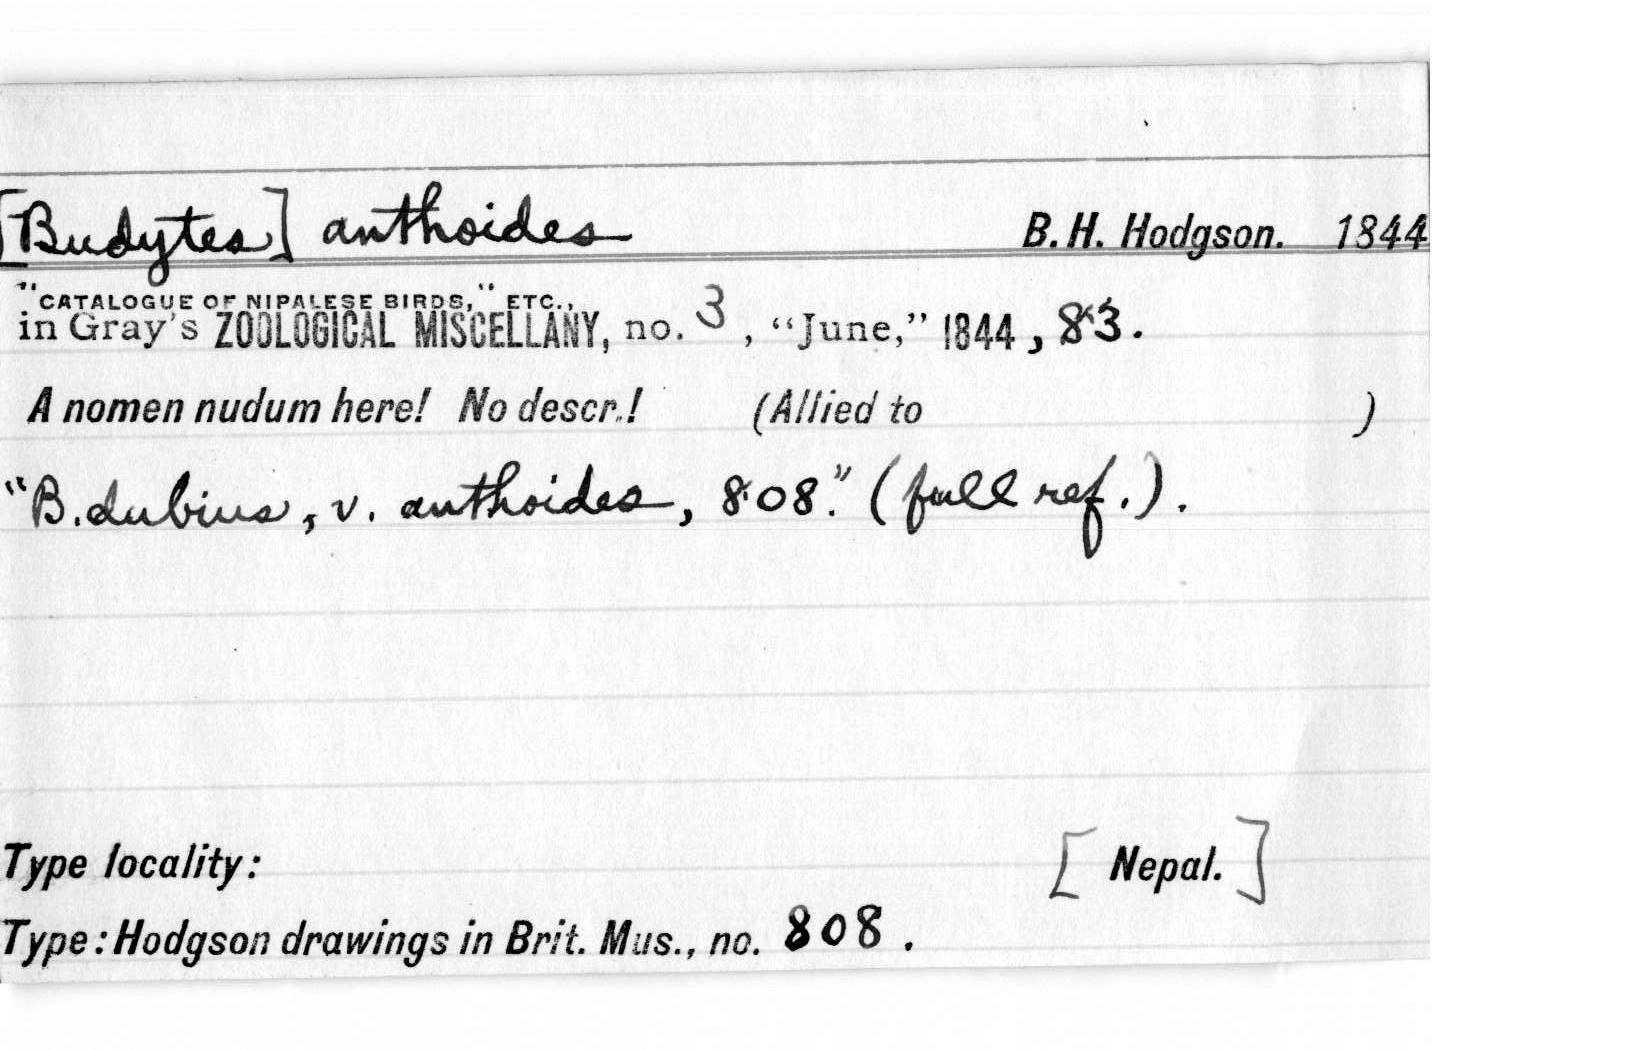 [Budytes] anthoides B. H. Hodgson. 1844
"CATALOGUE OF NIPALESE BIRDS," ETC.,
in Gray's ZOOLOGICAL MISCELLANY, no. 3, "June," 1844, 83.
A nomen nudum here! No descr.! (Allied to )
"B. dubius, v. anthoides, 808." (full ref.).
Type locality: [Nepal.]
Type: Hodgson drawings in Brit. Mus., no. 808.